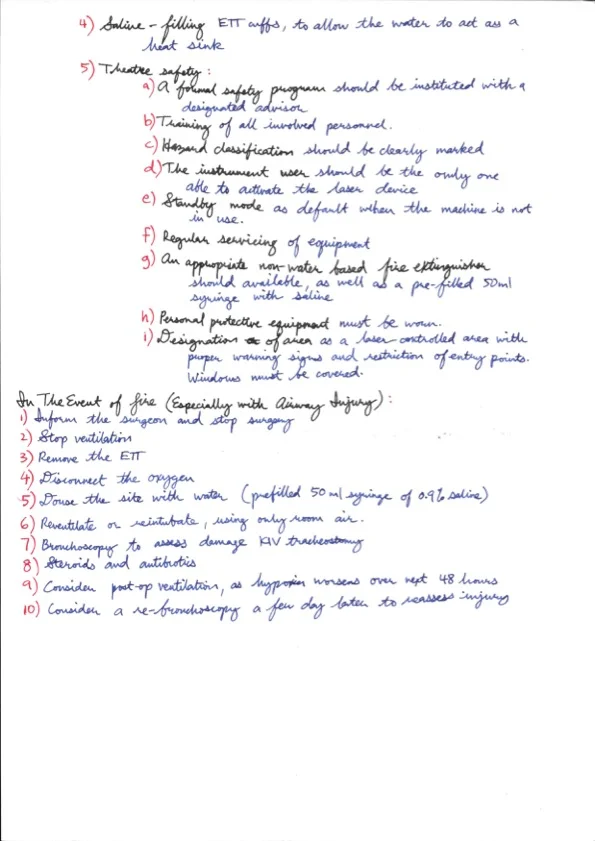 4) Saline - filling ETT cuffs, to allow the water to act as a
heat sink
5) Theatre safety:
a) A formal safety program should be instituted with a
designated advisor
b) Training of all involved personnel.
c) Hazard classification should be clearly marked
d) The instrument user should be the only one
able to activate the laser device
e) Standby mode as default when the machine is not
in use.
f) Regular servicing of equipment
g) An appropriate non-water based fire extinguisher
should available, as well as a pre-filled 50ml
syringe with saline
h) Personal protective equipment must be worn.
i) Designation of area as a laser-controlled area with
proper warning signs and restriction of entry points.
Windows must be covered.
In The Event of fire (Especially with Airway Injury):
1) Inform the surgeon and stop surgery
2) Stop ventilation
3) Remove the ETT
4) Disconnect the oxygen
5) Douse the site with water (prefilled 50ml syringe of 0.9% saline)
6) Reventilate or reintubate, using only room air.
7) Bronchoscopy to assess damage KIV tracheostomy
8) Steroids and antibiotics
9) Consider post-op ventilation, as hypoxia worsens over next 48 hours
10) Consider a re-bronchoscopy a few day later to reassess injury